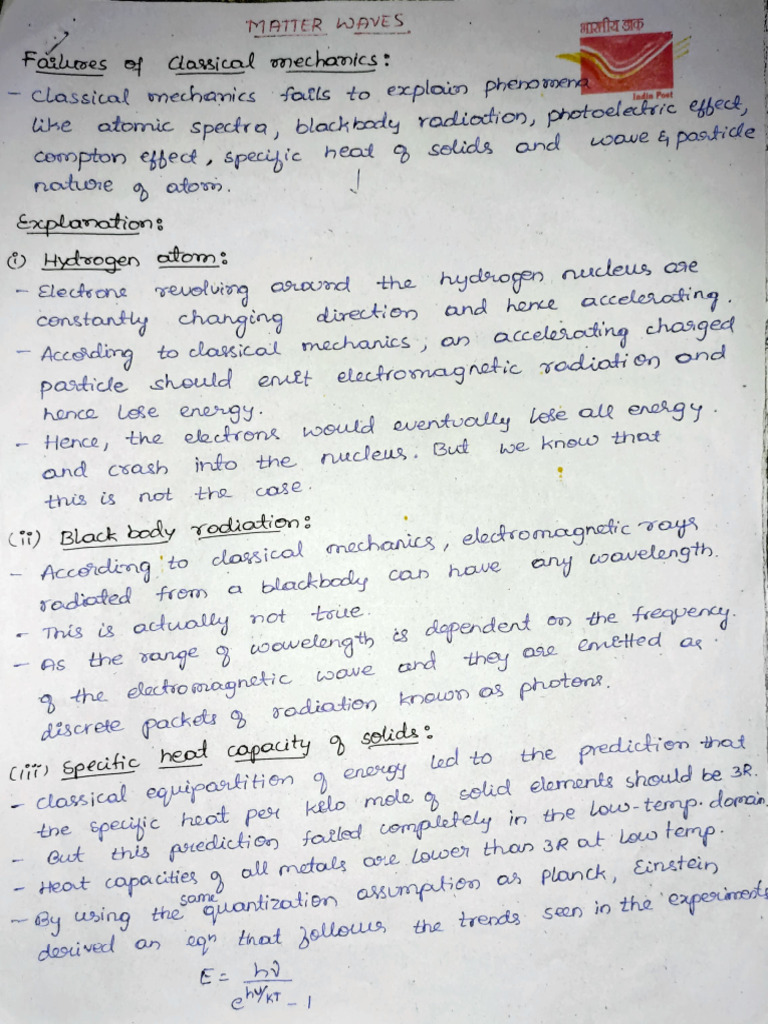 MATTER WAVES
भारतीय डाक
India Post
Failures of classical mechanics:
- Classical mechanics fails to explain phenomena
like atomic spectra, blackbody radiation, photoelectric effect,
compton effect, specific heat of solids and wave & particle
nature of atom.
Explanation:
(i) Hydrogen atom:
- Electrons revolving around the hydrogen nucleus are
constantly changing direction and hence accelerating.
- According to classical mechanics, an accelerating charged
particle should emit electromagnetic radiation and
hence lose energy.
- Hence, the electrons would eventually lose all energy.
and crash into the nucleus. But we know that
this is not the case.
(ii) Black body radiation:
- According to classical mechanics, electromagnetic rays
radiated from a blackbody can have any wavelength.
- This is actually not true.
- As the range of wavelength is dependent on the frequency.
of the electromagnetic wave and they are emitted as
discrete packets of radiation known as photons.
(iii) Specific heat capacity of solids:
- Classical equipartition of energy led to the prediction that
the specific heat per kilo mole of solid elements should be 3R.
- But this prediction failed completely in the low-temp. domain.
- Heat capacities of all metals are lower than 3R at low temp.
- By using the same quantization assumption as Planck, Einstein
derived an eqn that follows the trends seen in the experiments
E = hν / e^hν/KT - 1